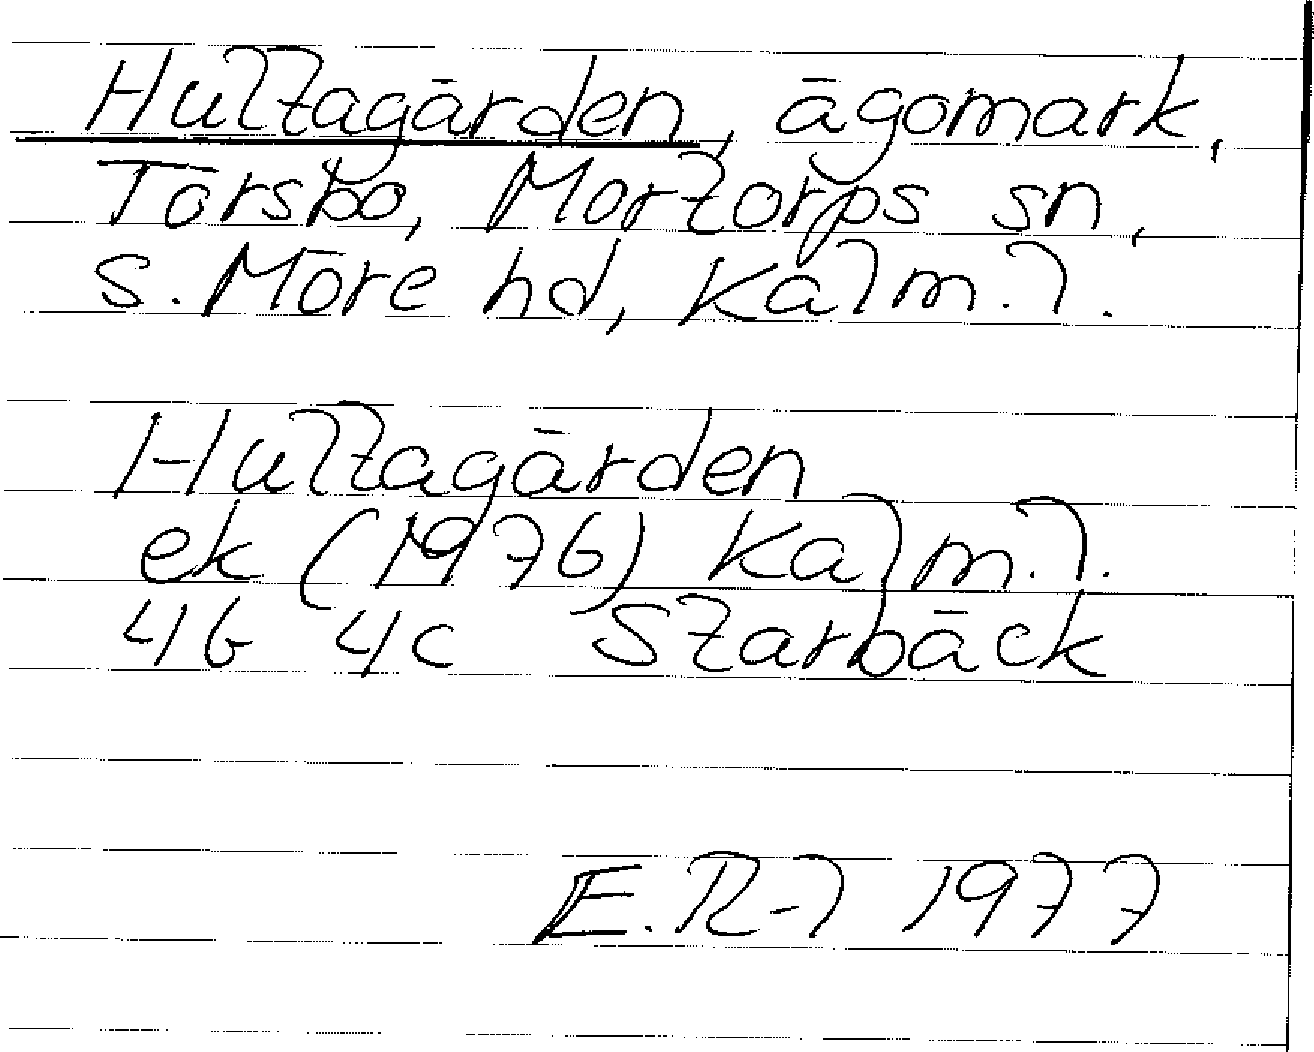 Hultagärden, ägomark,
Törsbo, Mortorps sn,
S. Möre hd, Kalm. l.
Hultagärden
ek (1976) Kalm. l.
4G 4c Starbäck
E. R-l 1977